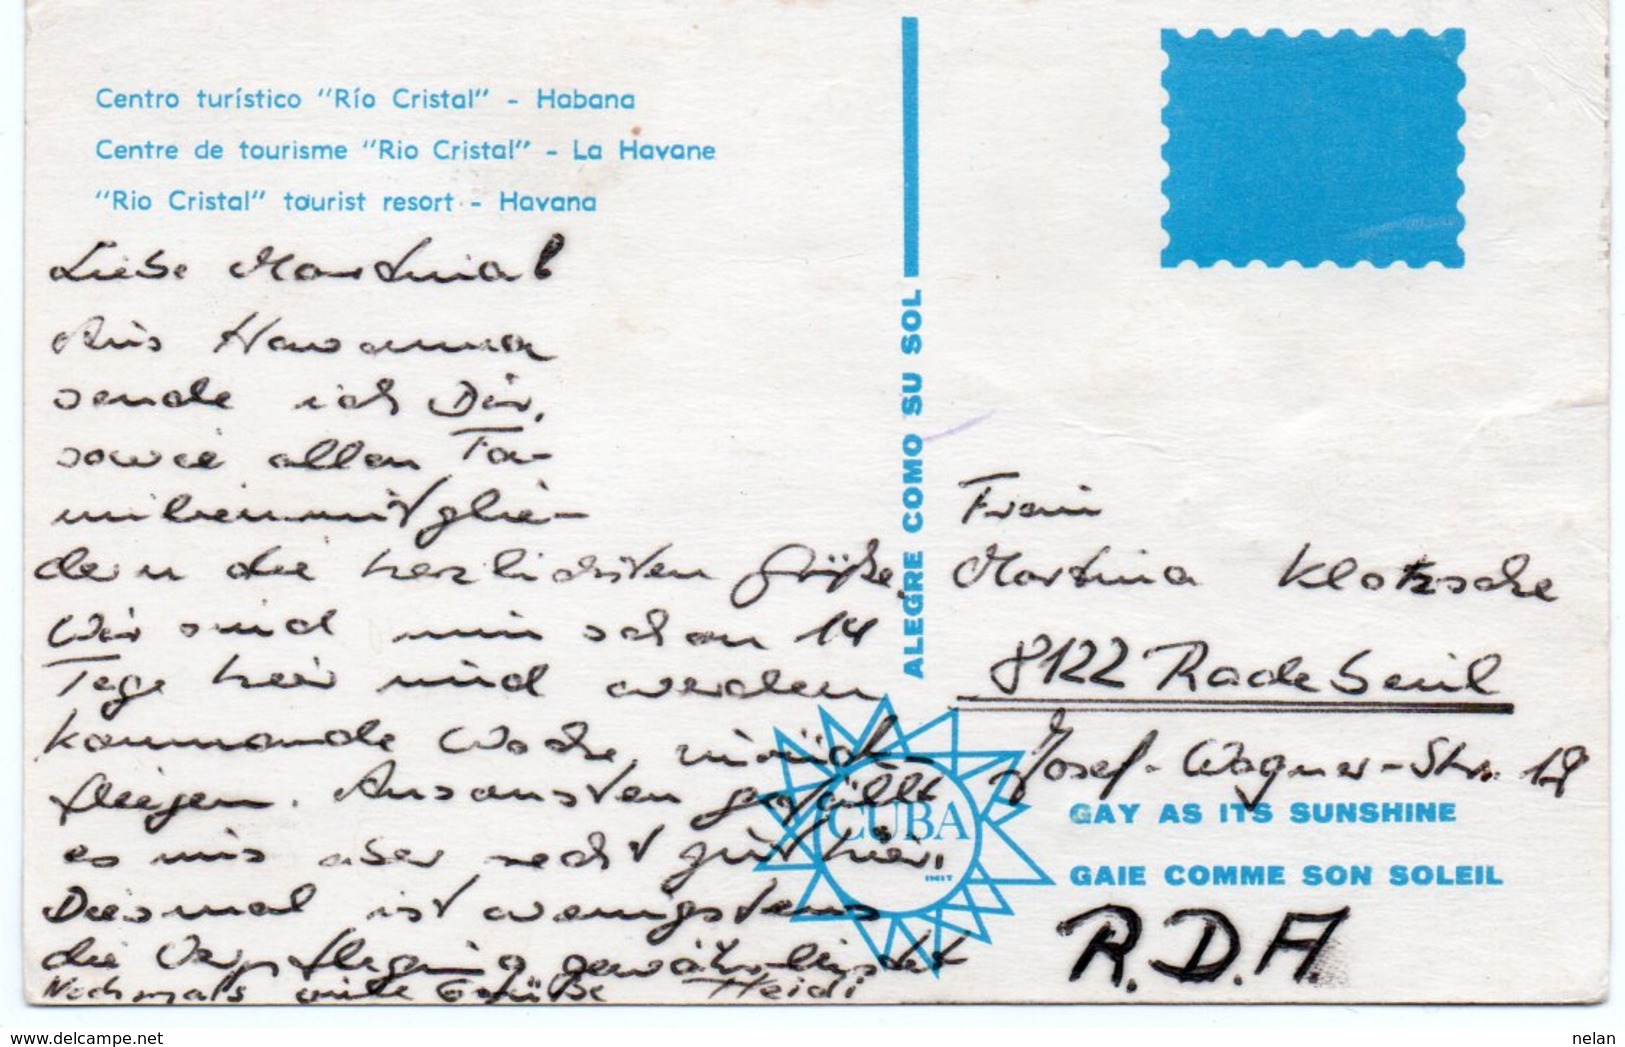 Centro turístico "Río Cristal" - Habana
Centre de tourisme "Rio Cristal" - La Havane
"Rio Cristal" tourist resort - Havana
Liebe
Aus Hawanna
sende ich Dir,
sowie allen Fa-
milienmitglie-
dern die herzlichsten Grüße.
Wir sind nun schon 14
Tage hier und werden
kommende Woche zurück-
fliegen. Ansonsten gefällt
es uns aber recht gut hier.
Diesmal ist wenigstens
die Verpflegung gewährleistet
Nochmals Grüße Heidi
ALEGRE COMO SU SOL
Frau
Martina Klotzsche
8122 Radebeul
Josef-Wagner-Str. 19
CUBA
INIT
GAY AS ITS SUNSHINE
GAIE COMME SON SOLEIL
R.D.A.
delcampe.net
nelan